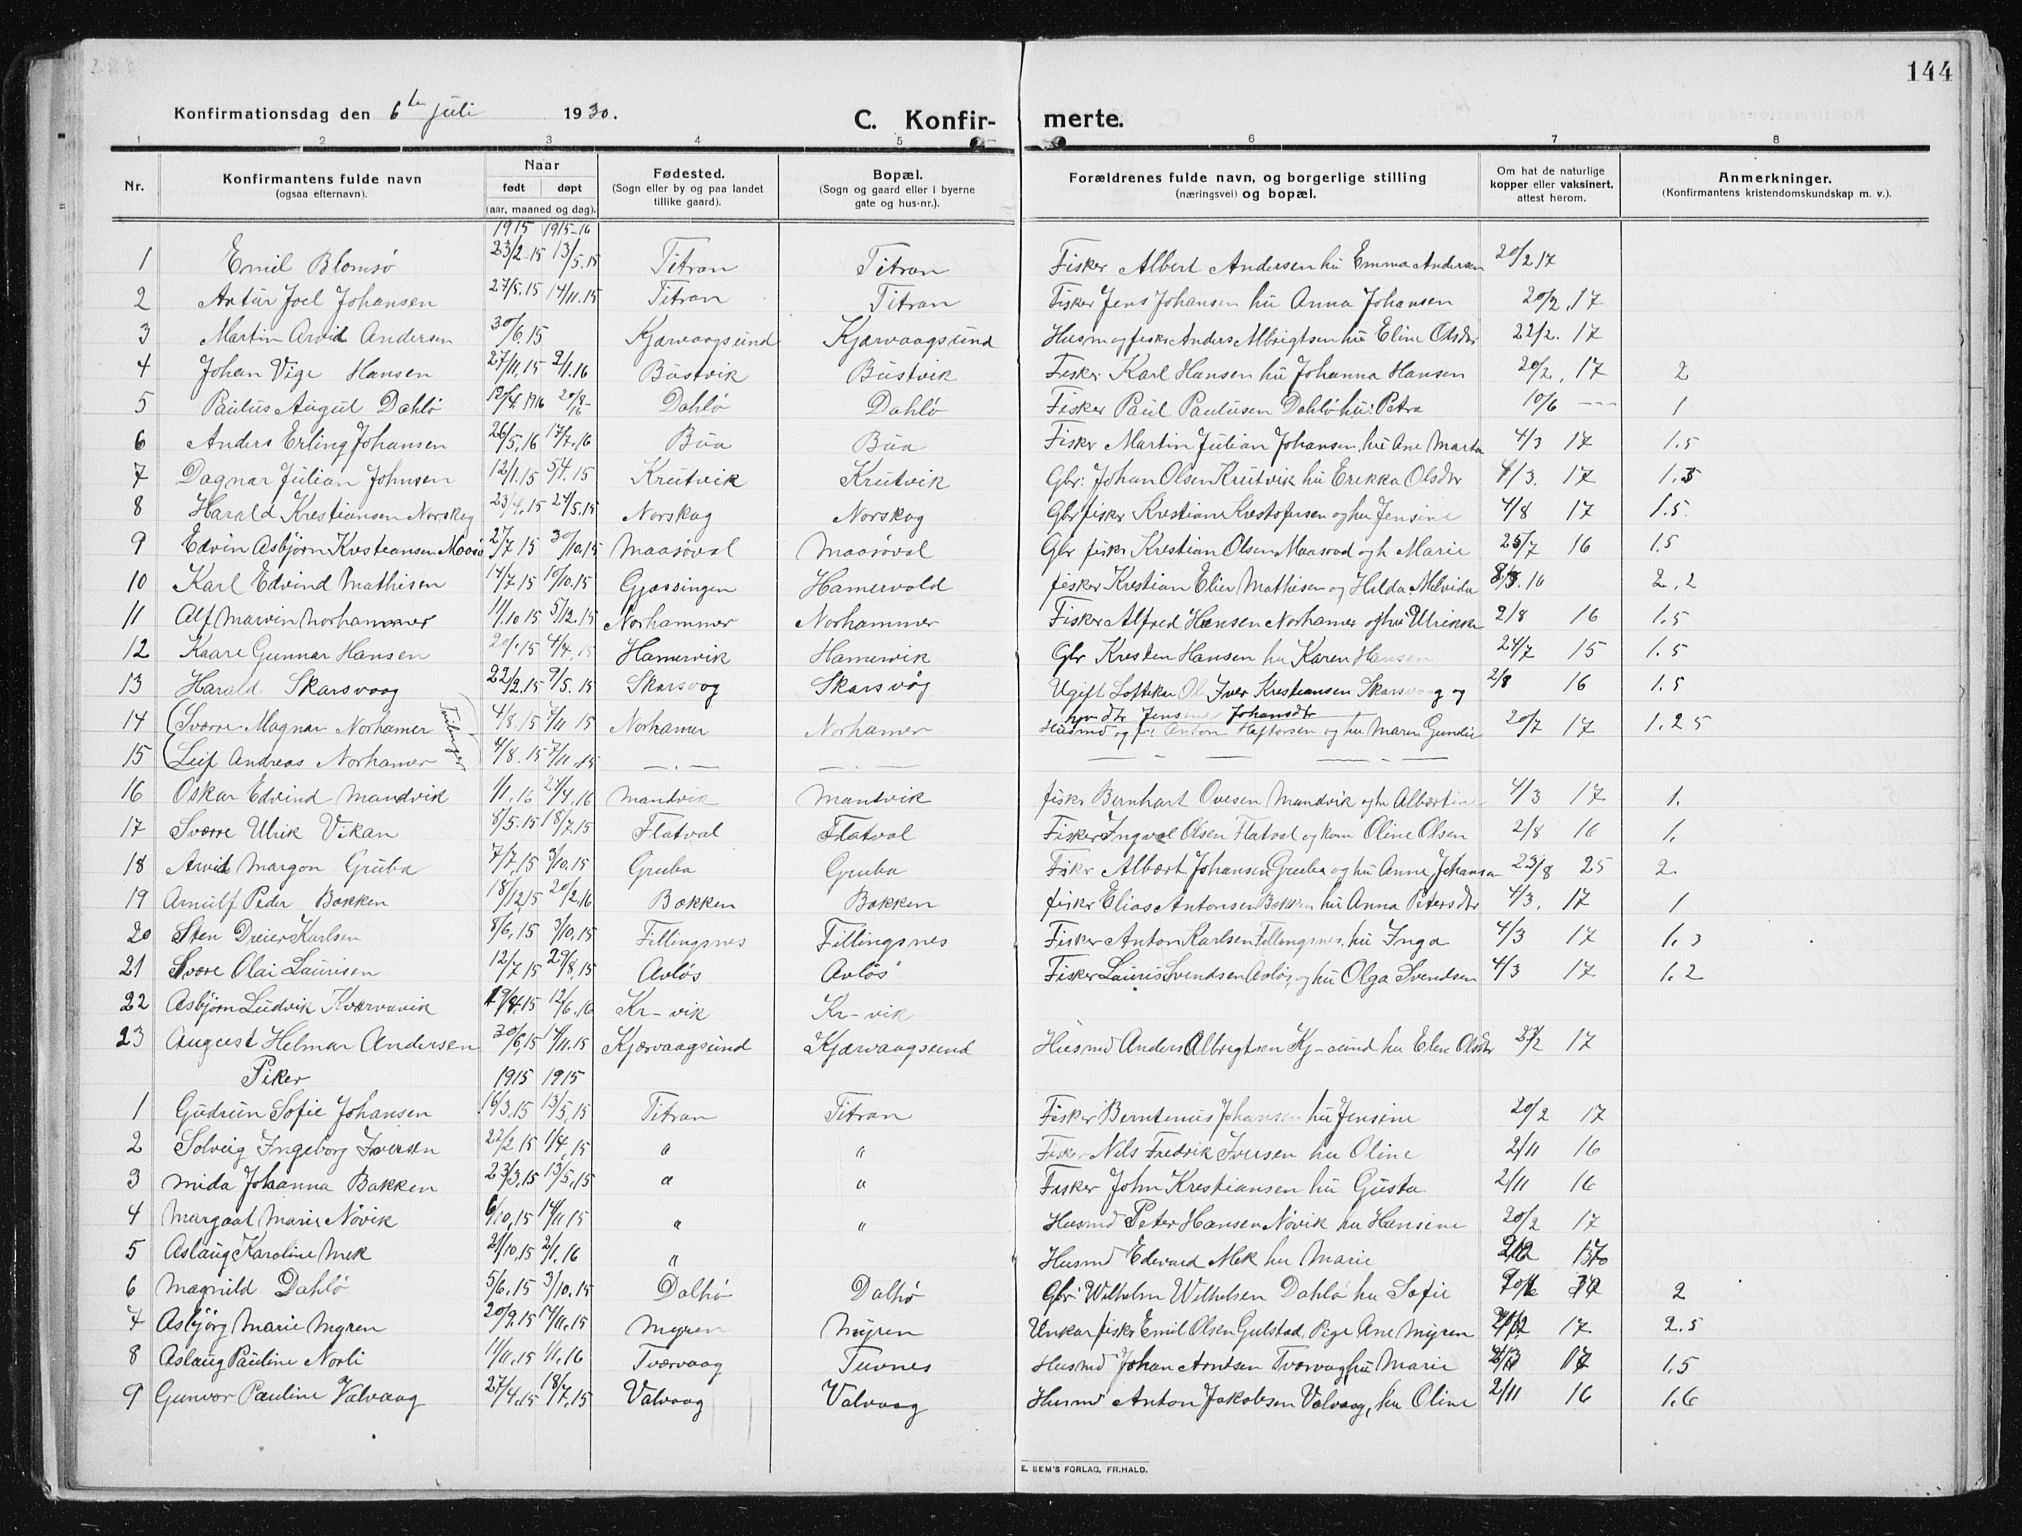 144
Konfirmationsdag den 6te juli 1930.
C. Konfir- merte.
1 2 3 4 5 6 7 8
Nr.
Konfirmantens fulde navn
(ogsaa efternavn).
Naar
født døpt
(aar, maaned og dag).
Fødested.
(Sogn eller by og paa landet
tillike gaard).
Bopæl.
(Sogn og gaard eller i byerne
gate og hus-nr.).
Forældrenes fulde navn, og borgerlige stilling
(næringsvei) og bopæl.
Om hat de naturlige
kopper eller vaksinert,
attest herom.
Anmerkninger.
(Konfirmantens kristendomskundskap m. v.).
1915 1915-16
1 Emil Blomsø 23/2-15 13/5.15 Titran Titran Fisker Albert Andersen hu Emma Andersen 20/2 17
2 Artur Joel Johansen 27/5.15 14/11.15 Titran Titran Fisker Jens Johansen hu Anna Johansen 20/2.17
3 Martin Arvid Andersen 30/6.15 Kjærvaagsund Kjærvaagsund Husm og fisker Anders Albrigtsen hu Eline Olsdtr 22/2. 17
4 Johan Vige Hansen 27/11.15 2/1.16 Bustvik Bustvik Fisker Karl Hansen hu Johanna Hansen 20/2, 17 2
5 Paulus August Dahlø 12/4. 1916 20/8-16 Dahlø Dahlø Fisker Paul Paulusen Dahlø hu: Petra 10/6 --- 1
6 Anders Erling Johansen 26/5.16 17/7.16 Bua Bua Fisker Martin Julian Johansen, hu Ane Marta 4/3 17 1.5
7 Dagnar Julian Johnsen 12/1.15 5/4.15 Krutvik Krutvik Gbr: Johan Olsen Krutvik hu Erikka Olsdtr 4/3. 17 1.5
8 Harald Krestiansen Norskag 23/4.15 24/5.15 Norskag Norskag Gbr fisker Krestian Krestofersen og hu Jensine 4/8 17 1.5
9 Edvin Asbjørn Krestiansen Maasø 2/7 15 30/10.15 Maasøval Maasøval Gbr fisker Krestian Olsen Maasoval og h Marie 25/7 16 1.5
10 Karl Edvind Mathisen 14/7.15 10/10.15 Gjæssingen Hamervold fisker Krestian Elier Mathisen og Hilda Melvida 8/8.16 2.2
11 Alf Marvin Norhammer 11/10 15 5/12.15 Norhammer Norhammer Fisker Alfred Hansen Norhamer og hu Ulrikke 2/8 16 1.5
12 Kaare Gunnar Hansen 4/4.15 Hamervik Hamervik Gbr Kresten Hansen hu Karen Hansen 24/7 15 1.5
13 Harald Skarsvaag 22/2.15 9/5.15 Skarsvog Skarsvåg Ugift Ol Iver Krestiansen Skarsvaag og 2/8 16 1.5
Jensine Johansdtr
14 (Sverre Magnar Norhamer Tvilinger 4/8.15 7/11 15 Norhamer Norhamer Husmd og fi. Anton Haftorsen og hu Maren Gundie 20/7 17 1.25
15 (Leif Andreas Norhamer 4/8.15 7/11.15 —.— —.— — — —
16 Oskar Edvind Mandvik 1/1.16 24/4.16 Mandvik Mandvik fisker Bernhart Ovesen Mandvik og hu Albertine 4/3 17 1.
17 Sverre Ulrik Vikan 8/5.15 18/7.15 Flatval Flatval Fisker Ingval Olsen Flatval og kone Oline Olsen 2/8 16 1.
18 Arvid Margon Gruba 7/7.15 3/10.15 Gruba Gruba Fisker Albert Johansen Gruba og hu Anna Johansen 23/8 25 2.
19 Arnulf Peder Bakken 18/12.15 20/2.16 Bakken Bakken fisker Elias Antonsen Bakken hu Anna Petersdtr 4/3. 17 1
20 Sten Dreier Karlsen 8/6.15 3/10.15 Fillingsnes Fillingsnes Fisker Anton Karlsen Fillingsnes, hu Inga 4/3 17 1.3
21 Sverre Olai Laurisen 12/7.15 29/8.15 Avløs Avløs Fisker Lauris Svendsen Avløs, og hu Olga Svendsen 4/3 17 1.2
22 Asbjørn Ludvik Kværnavik 12/6.16 Kr-vik Kr-vik
23 August Helmar Andersen 30/6.15 14/11.15 Kjærvaagsund Kjærvaagsund Husmd Anders Albregtsen Kj-sund hu Eline Olsdtr 17
Piker 1915 1915
1 Gudrun Sofie Johansen 16/3.15 13/5.15 Titran Titran Fisker Berntenus Johansen hu Jensine 20/2 17
2 Solveig Ingeborg Iversen 22/2.15 1/4.15 " " Fisker Nils Fredrik Iversen hu Oline 2/11 16
3 Mida Johanna Bakken 23/3.15 13/5.15 " " Fisker John Krestiansen hu Gusta 2/11 16
4 Margaat Marie Nøvik 6/10.15 14/11.15 " " Husmd Peter Hansen Nøvik hu Hansine 20/2 17
5 Aslaug Karoline Mek 21/10.15 2/1.16 " Husmd Edevard Mek hu Marie
6 Magnild Dahlø 5/6.15 3/10.15 Dalhø Dalhø Gbr: Wilhelm Wilhelsen Dahlø hu Sofie 2
7 Asbjørg Marie Myren 20/9.15 14/11.15 Myren Myren Unkar fisker Emil Olsen Gulstad, Pige Ane Myren 17 2.5
8 Aslaug Pauline Norli 11/11.15 1/1.16 Tværvaag Tuvnes Husmd Johan Arntsen Tværvaag hu Marie 17 1.5
9 Gunvor Pauline Valvaag 27/4.15 18/7.15 Valvaag Valvaag Husmd Anton Jakobsen Valvaag, hu Oline 2/11 16 1.6
E. SEM'S FORLAG, FR.HALD.